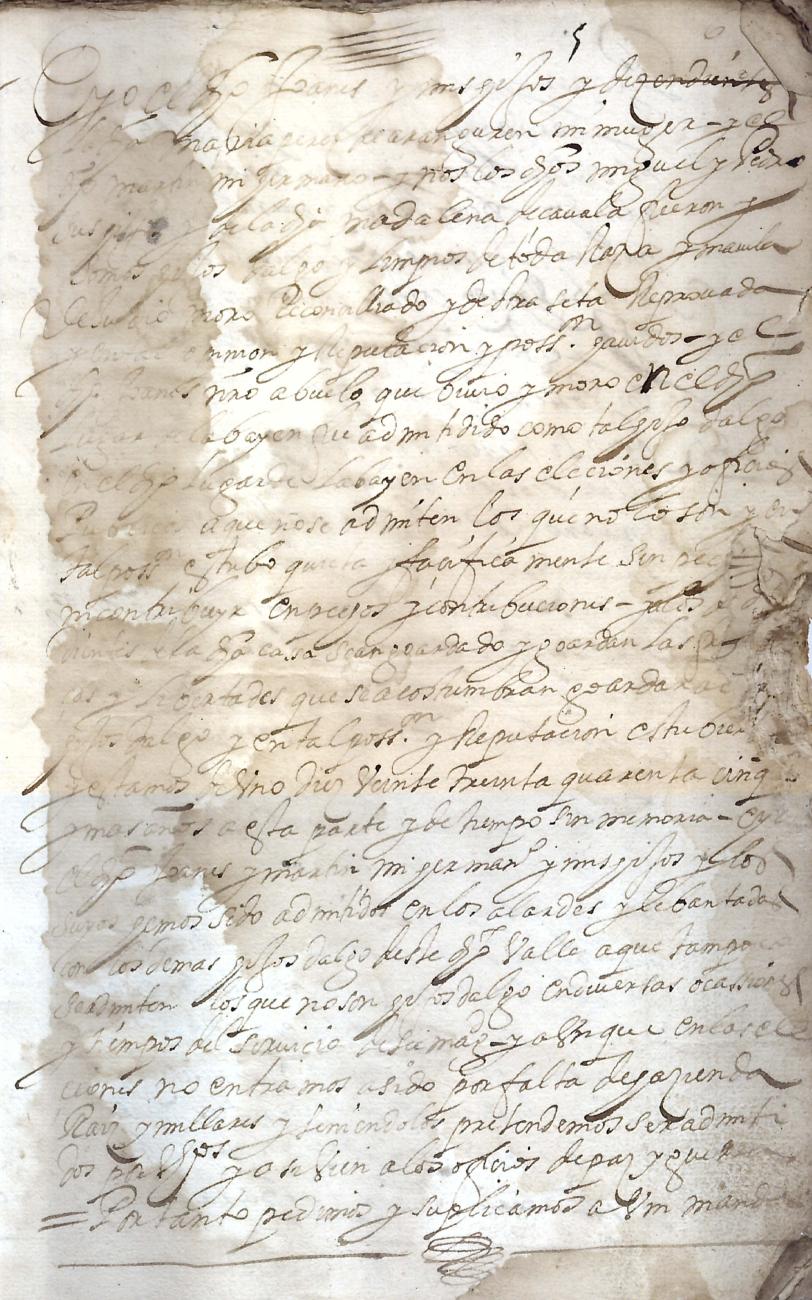 5
Que yo el dho Joanes y mis hijos y dezendientes
maria perez de aranguren mi muger - y el
dho martin mi hermano - y nos los dhos miguel y Pedro
de la dha madalena de cavala fueron y
somos hijos dalgo y limpios de toda Raza y macula
de Judio moro Reconciliado y de otra seta Reprovada
y en tal comun y Reputacion y poss.on avidos - y el
dho Joanes nro abuelo que bivio y moro en el dho
lugar de labayen fue admitidido como tal hijo dalgo
en el dho lugar de Labayen en las eleciones y oficios
a que no se admiten los que no lo son y en
tal poss.on estubo quieta y pacificamente sin
ni contribuyr en pechos y contribuciones - y a los
de la dha cassa se an goardado y goardan las
y libertades que se acostumbran goardar a
hijos dalgo y en tal poss.on y Reputacion estubier
y estamos de Uno diez Veinte treinta quarenta cinq
y mas años a esta parte y de tiempo sin memoria -
el dho Joanes y martin mi herman.o y mis hijos y los
suyos hemos sido admitidos en los alardes y lebantadas
con los demas hijos dalgo deste dho Valle a que tampoco
se admiten los que no son hijos dalgo en diversas ocassiones
y tiempos del servicio de su mag.d - y aunque en las el
eciones no entramos a sido por falta de hazienda
Raiz y millares y teniendolos pretendemos ser admiti
dos por dhos y a se bien a los oficios de paz y guerra
= Por tanto pedimos y suplicamos a Vm mande